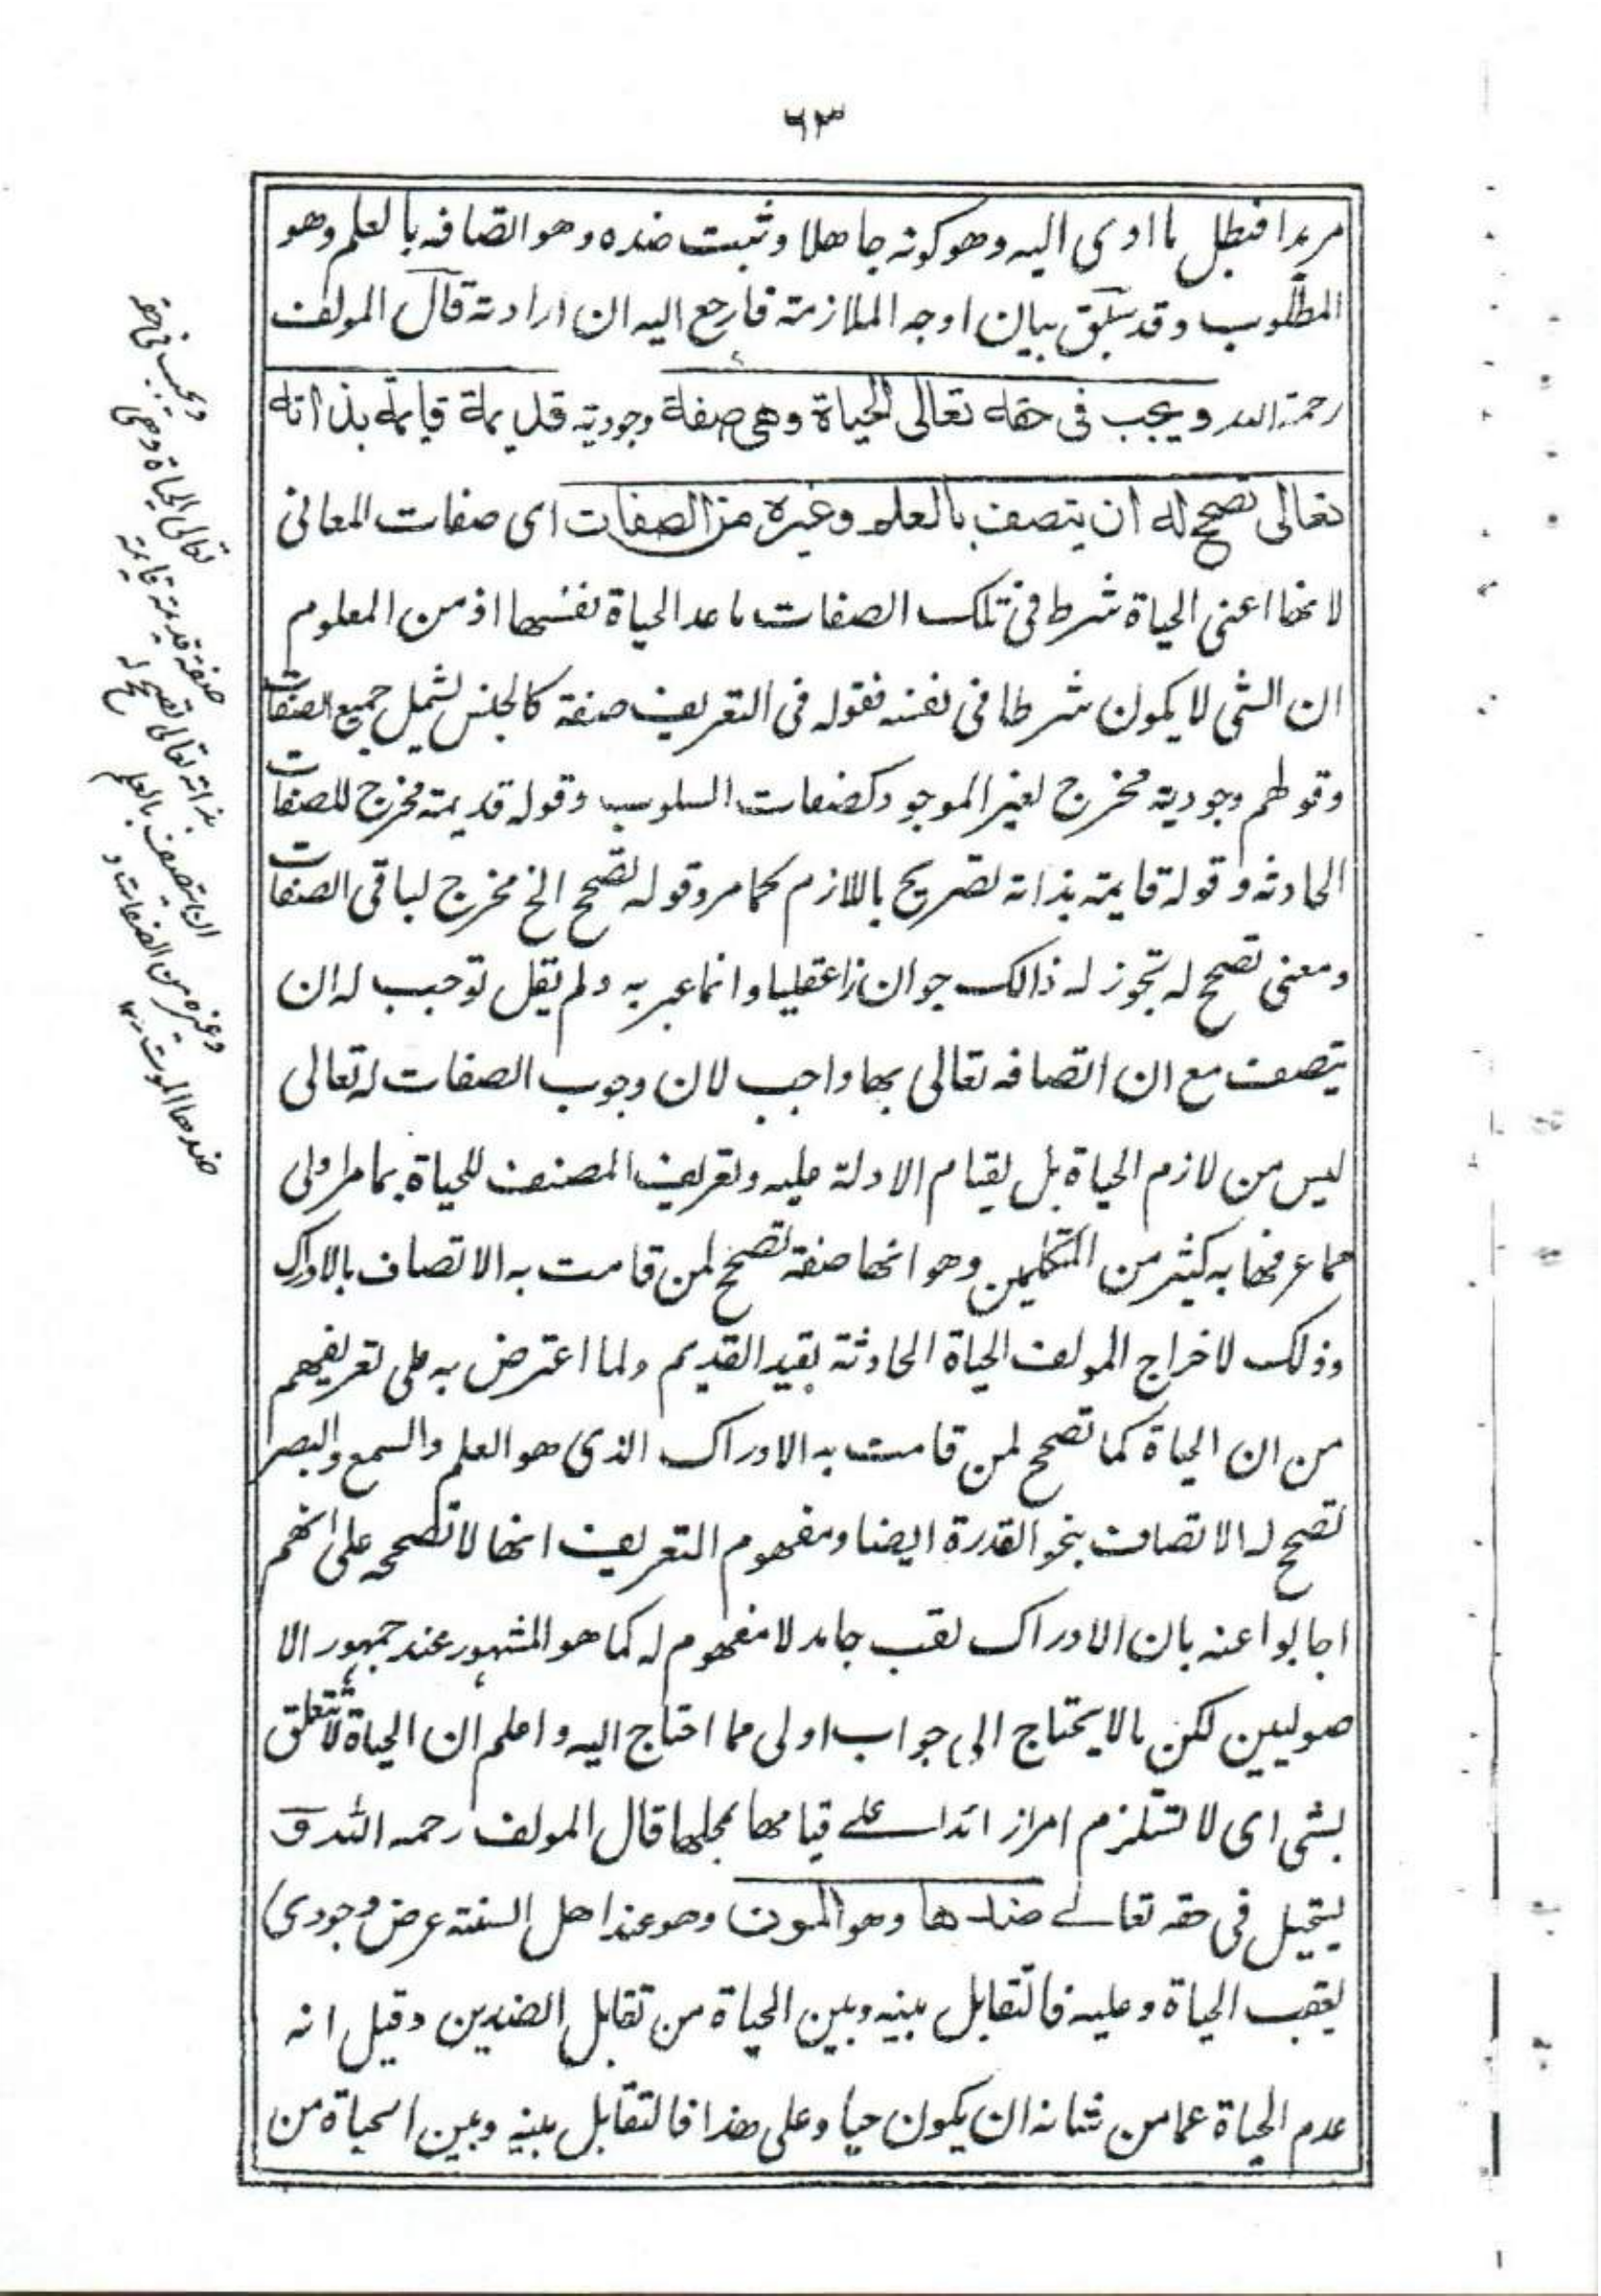 ٦٣
مريدا فبطل ما ادى اليه وهو كونه جاهلا وثبت ضده وهو اتصافه بالعلم وهو
المطلوب وقد سبق بيان اوجه الملازمة فارجع اليه ان ارادته قال المولف
رحمة الله ويجب فى حقه تعالى الحياة وهى صفة وجودية قديمة قايمة بذاته
تعالى تصحح له ان يتصف بالعلم وغيره من الصفات اى صفات المعانى
لانها اعنى الحياة شرط فى تلك الصفات ما عدا لحياة نفسها اذ من المعلوم
ان الشى لا يكون شرطا فى نفسه فقوله فى التعريف صفة كالجنس لشمل جميع الصفات
وقولهم وجودية مخرج لغير الموجود كصفات السلوب وقوله قديمة مخرج للصفات
الحادثه وقولة قايمة بذاته تصريح باللازم كما مر وقوله تصحح الخ مخرج لباقى الصفات
ومعنى تصحح له تجوز له ذالك جوازا عقليا وانما عبر به ولم يقل توجب له ان
يتصف مع ان اتصافه تعالى بها واجب لان وجوب الصفات له تعالى
ليس من لازم الحياة بل لقيام الادلة عليه وتعريف المصنف للحياة بما مر اولى
مما عرفها به كثير من المتكلمين وهو انها صفة تصحح لمن قامت به الاتصاف بالادراك
وذلك لاخراج المولف الحياة الحادثة بقيد القديم ولما اعترض به على تعريفهم
من ان الحياة كما تصحح لمن قامت به الادراك الذى هو العلم والسمع والبصر
تصحح له الاتصاف بنحو القدرة ايضا ومفهوم التعريف انها لا تصححه على انهم
اجابوا عنه بان الادراك لقب جامد لا مفهوم له كما هو المشهور عند جمهور الا
صوليين لكن مالا يحتاج الى جواب اولى مما احتاج اليه واعلم ان الحياة لا تتعلق
بشى اى لا تستلزم امرازائدا على قيامها بمحلها قال المولف رحمه الله و
يستحيل فى حقه تعالے ضدها وهو الموت وهو عند اهل السنة عرض وجودى
يعقب الحياة وعليه فالتقابل بينه وبين الحياة من تقابل الضدين وقيل انه
عدم الحياة عما من شانه ان يكون حيا وعلى هذا فالتقابل بينه وبين الحياة من
ويجب فى حقه
تعالى الحياة وهى
صفة قديمة قايمة
بذاته تعالى تصحح له
ان يتصف بالعلم
وغيره من الصفات و
ضدها الموت